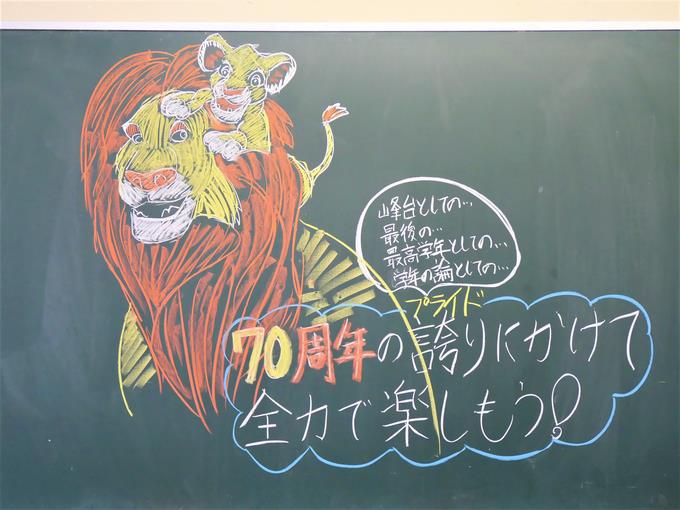 峰台としての…
最後の…
最高学年としての…
学年の論としての…
プライド
70周年の誇りにかけて
全力で楽しもう!